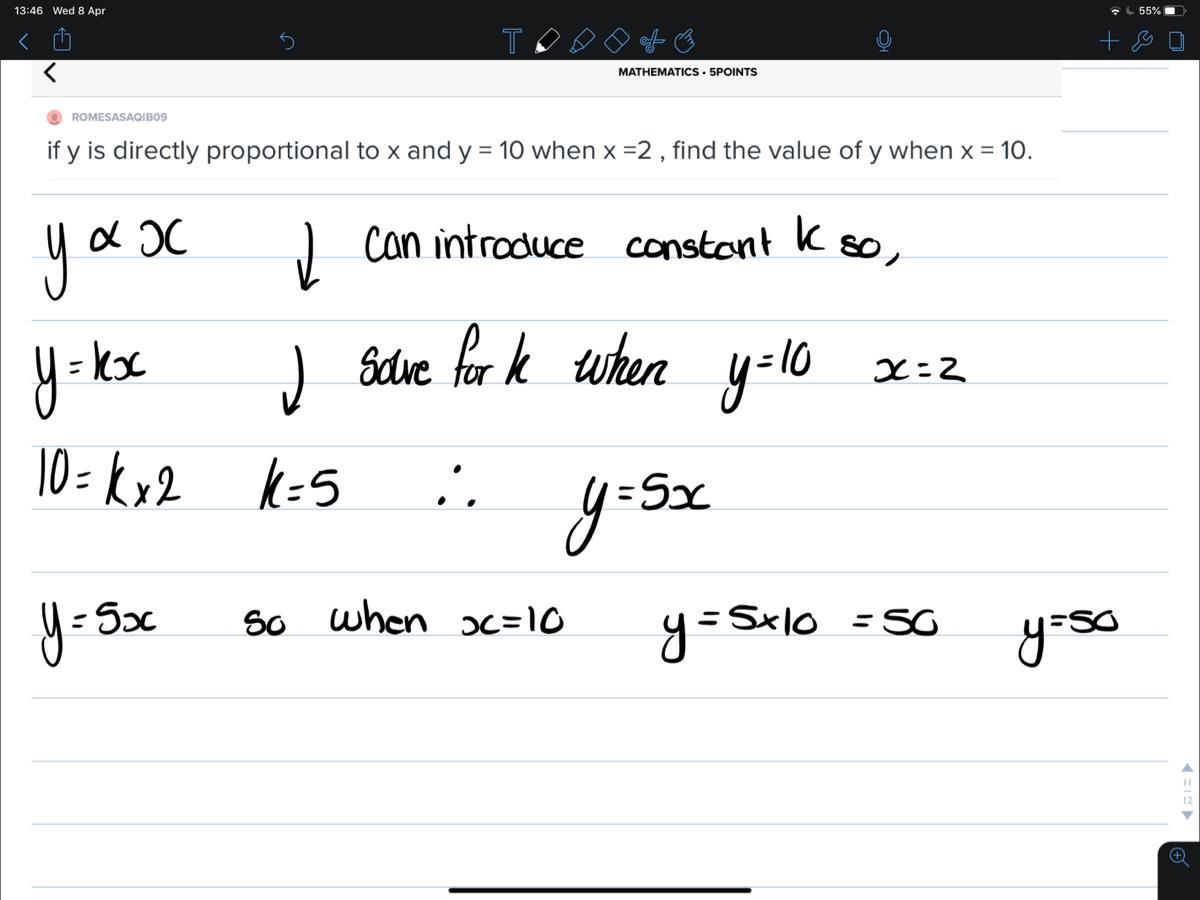 13:46 Wed 8 Apr 55%
T
MATHEMATICS • 5POINTS
ROMESASAQIB09
if y is directly proportional to x and y = 10 when x =2 , find the value of y when x = 10.
y ∝ x ↓ can introduce constant k so,
y = kx ↓ solve for k when y=10 x=2
10 = k x 2 k=5 ∴ y=5x
y = 5x so when x=10 y = 5x10 = 50 y=50
11
12